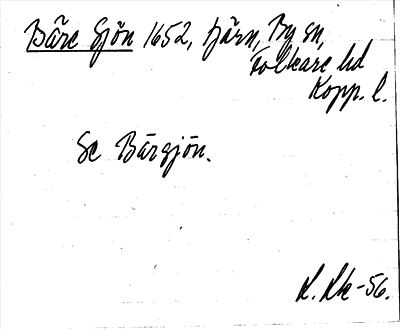 Båre Sjön 1652, tjärn, By sn,
Folkare hd
Kopp. l.
Se Bärsjön.
56.